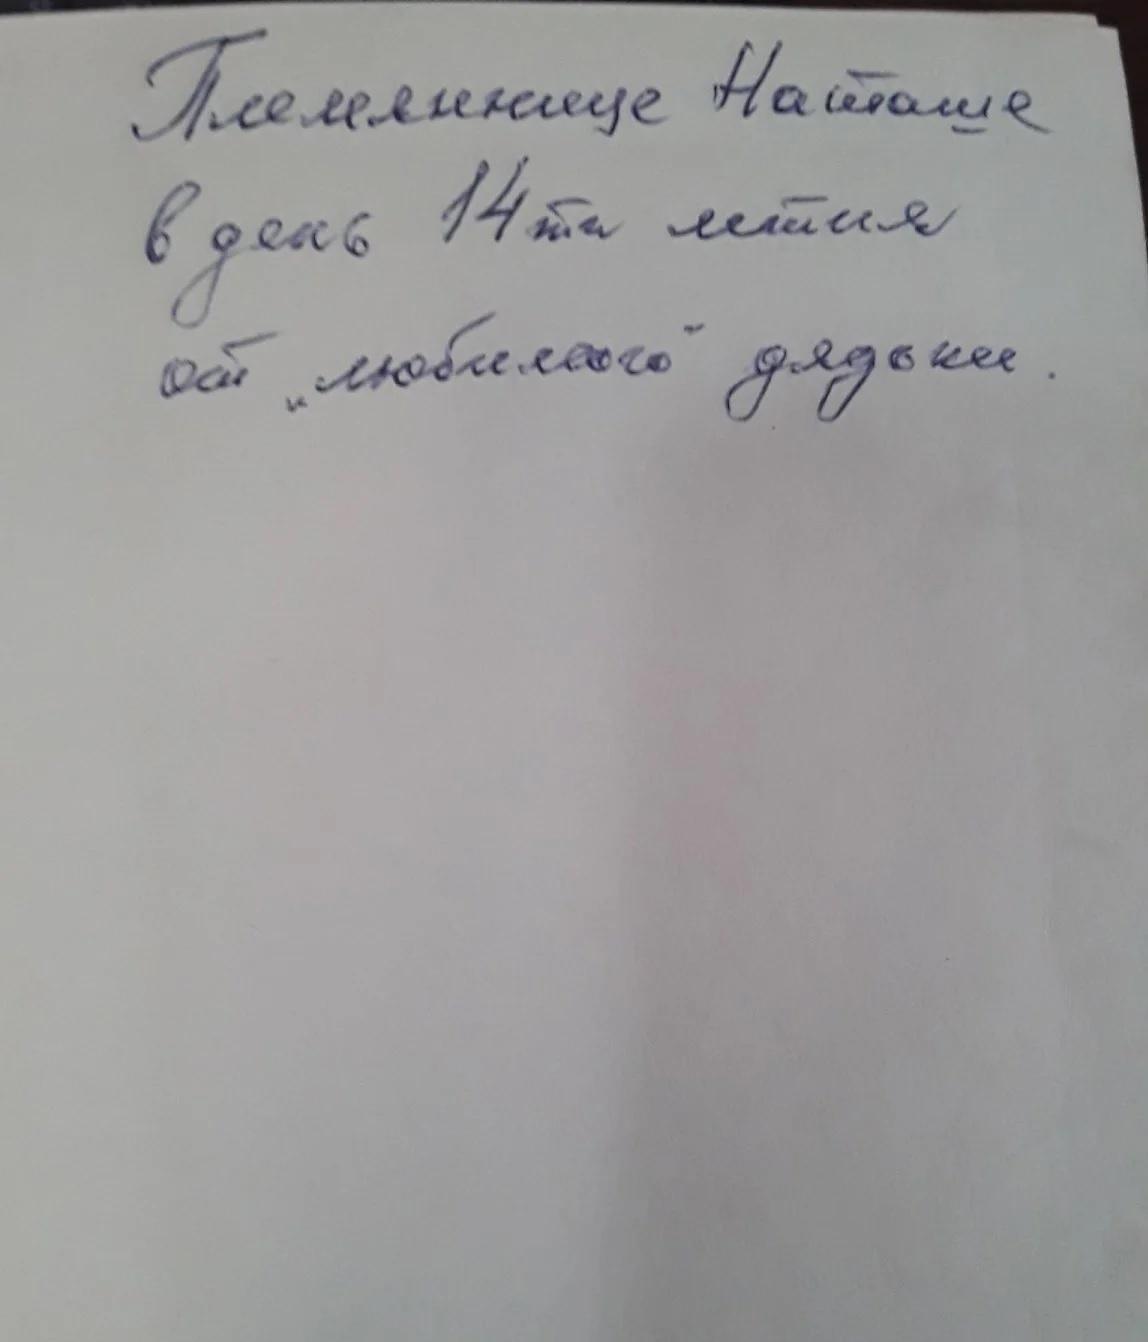 Племяннице Наташе
в день 14ти летия
от „любимого" дядьки.